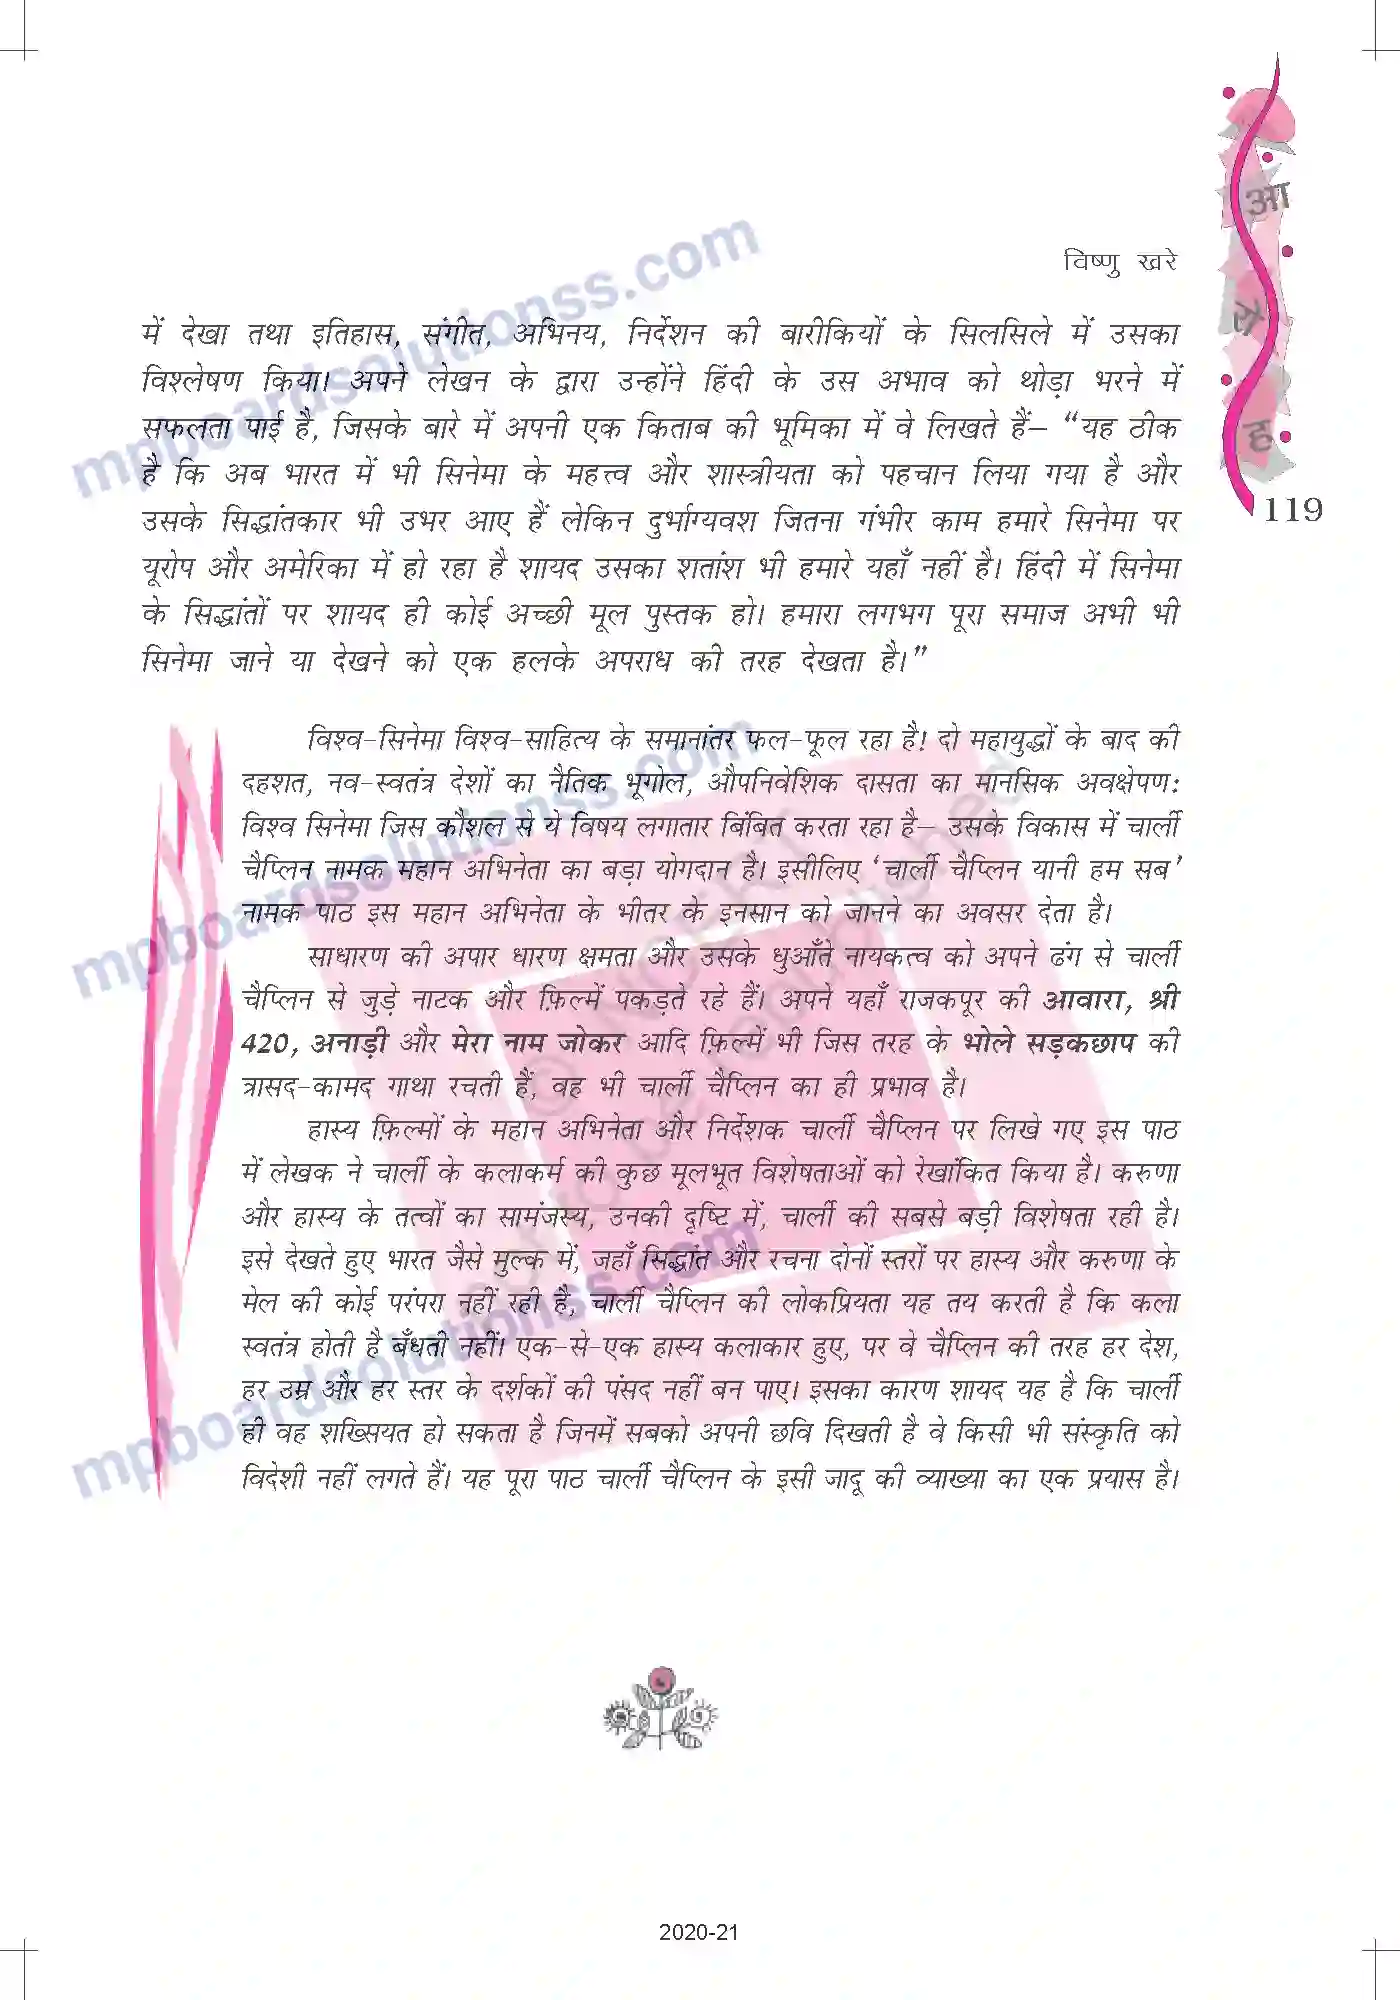 विष्णु खरे
आ
रो
ह
119
में देखा तथा इतिहास, संगीत, अभिनय, निर्देशन की बारीकियों के सिलसिले में उसका
विश्लेषण किया। अपने लेखन के द्वारा उन्होंने हिंदी के उस अभाव को थोड़ा भरने में
सफलता पाई है, जिसके बारे में अपनी एक किताब की भूमिका में वे लिखते हैं– “यह ठीक
है कि अब भारत में भी सिनेमा के महत्त्व और शास्त्रीयता को पहचान लिया गया है और
उसके सिद्धांतकार भी उभर आए हैं लेकिन दुर्भाग्यवश जितना गंभीर काम हमारे सिनेमा पर
यूरोप और अमेरिका में हो रहा है शायद उसका शतांश भी हमारे यहाँ नहीं है। हिंदी में सिनेमा
के सिद्धांतों पर शायद ही कोई अच्छी मूल पुस्तक हो। हमारा लगभग पूरा समाज अभी भी
सिनेमा जाने या देखने को एक हलके अपराध की तरह देखता है।”
विश्व-सिनेमा विश्व-साहित्य के समानांतर फल-फूल रहा है! दो महायुद्धों के बाद की
दहशत, नव-स्वतंत्र देशों का नैतिक भूगोल, औपनिवेशिक दासता का मानसिक अवक्षेपण:
विश्व सिनेमा जिस कौशल से ये विषय लगातार बिंबित करता रहा है– उसके विकास में चार्ली
चैप्लिन नामक महान अभिनेता का बड़ा योगदान है। इसीलिए ‘चार्ली चैप्लिन यानी हम सब’
नामक पाठ इस महान अभिनेता के भीतर के इनसान को जानने का अवसर देता है।
साधारण की अपार धारण क्षमता और उसके धुआँते नायकत्व को अपने ढंग से चार्ली
चैप्लिन से जुड़े नाटक और फ़िल्में पकड़ते रहे हैं। अपने यहाँ राजकपूर की आवारा, श्री
420, अनाड़ी और मेरा नाम जोकर आदि फ़िल्में भी जिस तरह के भोले सड़कछाप की
त्रासद-कामद गाथा रचती हैं, वह भी चार्ली चैप्लिन का ही प्रभाव है।
हास्य फ़िल्मों के महान अभिनेता और निर्देशक चार्ली चैप्लिन पर लिखे गए इस पाठ
में लेखक ने चार्ली के कलाकर्म की कुछ मूलभूत विशेषताओं को रेखांकित किया है। करुणा
और हास्य के तत्वों का सामंजस्य, उनकी दृष्टि में, चार्ली की सबसे बड़ी विशेषता रही है।
इसे देखते हुए भारत जैसे मुल्क में, जहाँ सिद्धांत और रचना दोनों स्तरों पर हास्य और करुणा के
मेल की कोई परंपरा नहीं रही है, चार्ली चैप्लिन की लोकप्रियता यह तय करती है कि कला
स्वतंत्र होती है बँधती नहीं। एक-से-एक हास्य कलाकार हुए, पर वे चैप्लिन की तरह हर देश,
हर उम्र और हर स्तर के दर्शकों की पंसद नहीं बन पाए। इसका कारण शायद यह है कि चार्ली
ही वह शख्सियत हो सकता है जिनमें सबको अपनी छवि दिखती है वे किसी भी संस्कृति को
विदेशी नहीं लगते हैं। यह पूरा पाठ चार्ली चैप्लिन के इसी जादू की व्याख्या का एक प्रयास है।
mpboardsolutionss.com
mpboardsolutionss.com
mpboardsolutionss.com
© NCERT
not to be republished
2020-21